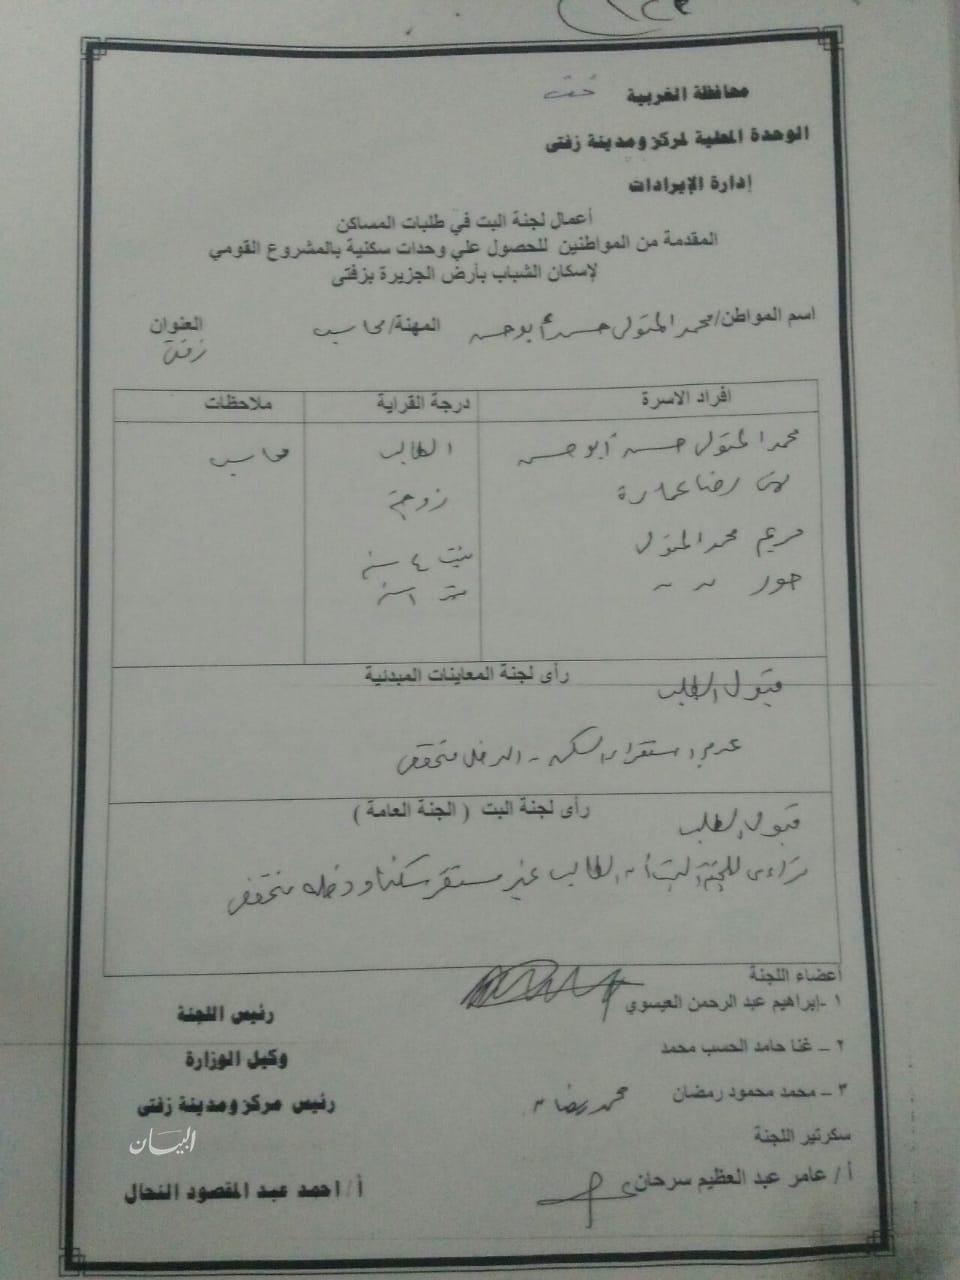 محافظة الغربية
الوحدة المحلية لمركز ومدينة زفتى
إدارة الإيرادات
أعمال لجنة البت في طلبات المساكن
المقدمة من المواطنين للحصول علي وحدات سكنية بالمشروع القومي
لإسكان الشباب بأرض الجزيرة بزفتى
اسم المواطن/ محمد المتولى حسن أبو حسن المهنة/ محاسب العنوان
زفتى
افراد الاسرة درجة القراية ملاحظات
محمد المتولى حسن أبو حسن الطالب محاسب
رضا عمارة زوجة
مريم محمد المتولى بنت ٤ سنه
حور " " سنه
رأى لجنة المعاينات المبدئية
قبول الطلب
عدم استقرار السكن - الدخل منخفض
رأى لجنة البت ( الجنة العامة )
قبول الطلب
تراءى للجنة البت أن الطالب غير مستقر سكنيا ودخله منخفض
أعضاء اللجنة
١ -إبراهيم عبد الرحمن العيسوي
٢ – غنا حامد الحسب محمد
٣ – محمد محمود رمضان محمد رمضان
سكرتير اللجنة
أ / عامر عبد العظيم سرحان
رئيس اللجنة
وكيل الوزارة
رئيس مركز ومدينة زفتى
البيان
أ / احمد عبد المقصود النحال